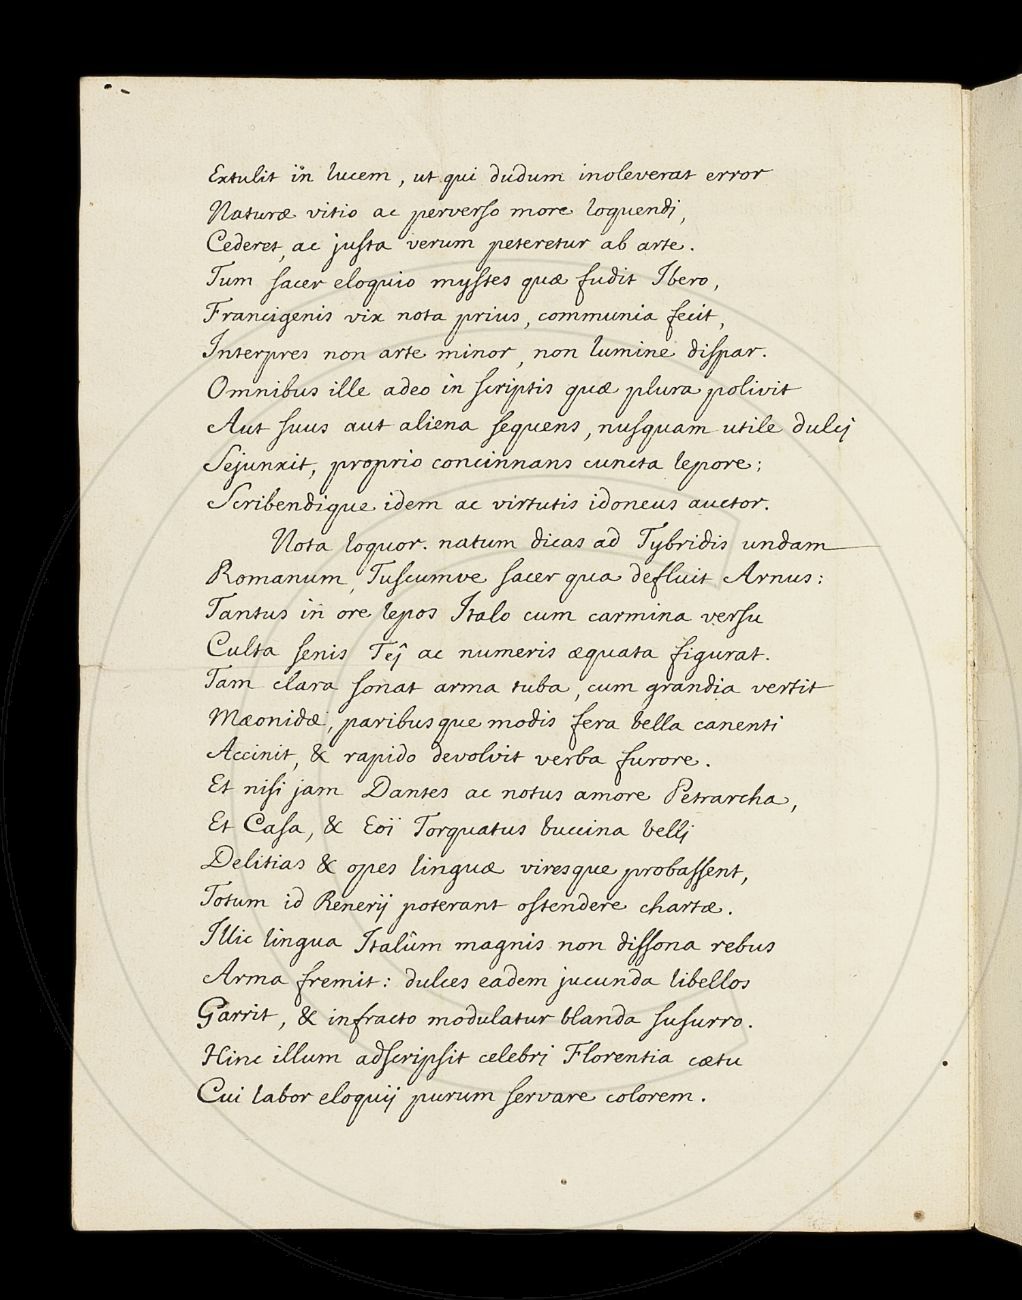 Extulit in lucem, ut qui dudum inoleverat error
Naturæ vitio ac perverſo more loquendi,
Cederet, ac juſta verum peteretur ab arte.
Tum ſacer eloquio myſtes quæ fudit Ibero,
Francigenis vix nota prius, communia fecit,
Interpres non arte minor, non lumine diſpar.
Omnibus ille adeo in ſcriptis quæ plura polivit
Aut ſuus aut aliena ſequens, nuſquam utile dulcj
Sejunxit, proprio concinnans cuncta lepore;
Scribendique idem ac virtutis idoneus auctor.
Nota loquor. natum dicas ad Tybridis undam
Romanum, Tuſcumve ſacer qua defluit Arnus:
Tantus in ore lepos Italo cum carmina verſu
Culta ſenis Teĵ ac numeris æquata figurat.
Tam clara ſonat arma tuba, cum grandia vertit
Mæonidæ, paribusque modis fera bella canenti
Accinit, & rapido devolvit verba furore.
Et niſi jam Dantes ac notus amore Petrarcha,
Et Caſa, & Eoï Torquatus buccina bellj
Delitias & opes linguæ viresque probaſſent,
Totum id Renerij poterant oſtendere chartæ.
Illic lingua Italûm magnis non diſſona rebus
Arma fremit: dulces eadem jucunda libellos
Garrit, & infracto modulatur blanda ſuſurro.
Hinc illum adſcripſit celebrj Florentia cætu
Cui labor eloquij purum ſervare colorem.